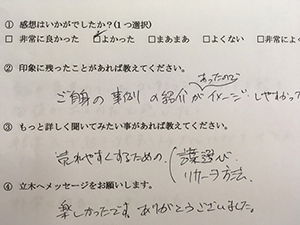 ① 感想はいかがでしたか？(1つ選択)
□ 非常に良かった ☑よかった □まあまあ □よくない □非常によく
② 印象に残ったことがあれば教えてください。
あったので
ご自身の事例の紹介がイメージしやすかっ
③ もっと詳しく聞いてみたい事があれば教えてください。
売れやすくするための
言葉選び
リサーチ方法
④ 立木へメッセージをお願いします。
楽しかったです。ありがとうございました。